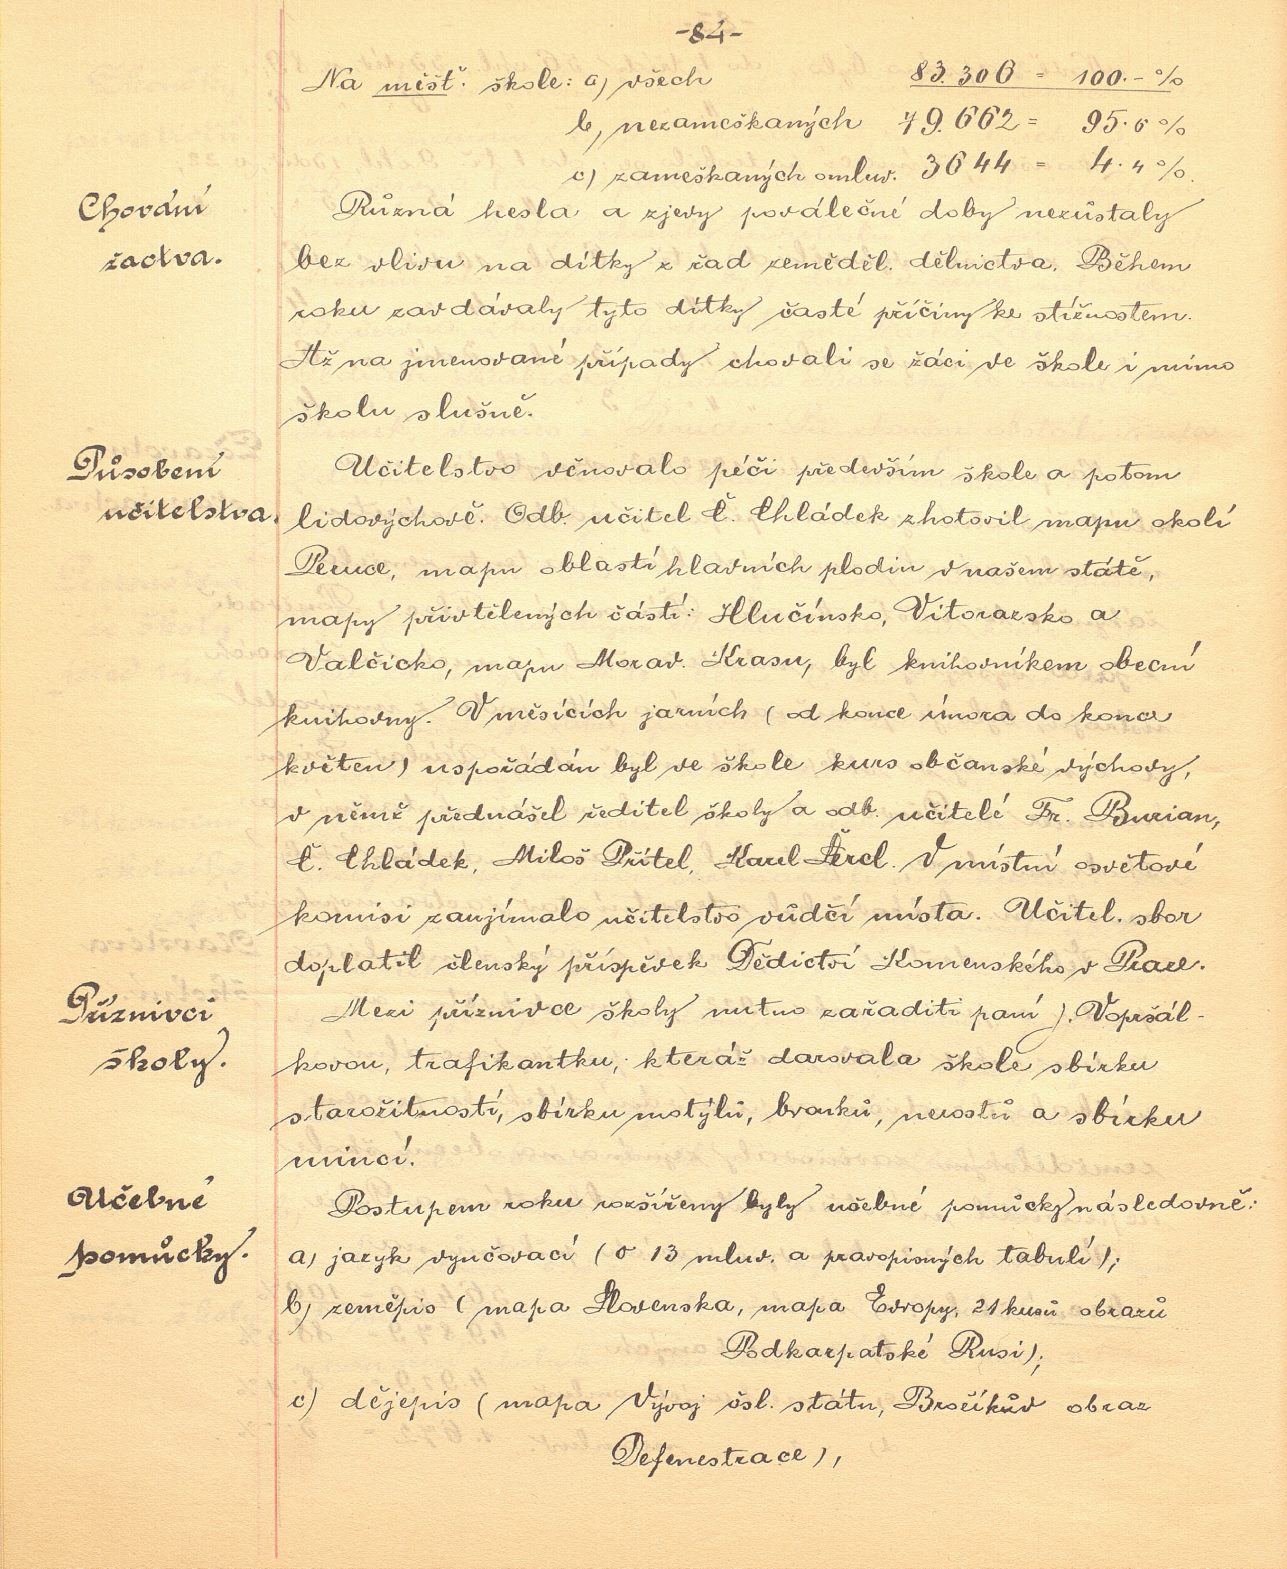 -84-
Na měšť. škole: a) všech 83.306 = 100.- %
b) nezameškaných 79.662 = 95.6 %
c) zameškaných omluv. 3644 = 4.4 %.
Chování
žactva.
Různá hesla a zjevy poválečné doby nezůstaly
bez vlivu na dítky z řad zeměděl. dělnictva. Během
roku zavdávaly tyto dítky časté příčiny ke stížnostem.
Až na jmenované případy chovali se žáci ve škole i mimo
školu slušně.
Působení
učitelstva.
Učitelstvo věnovalo péči především škole a potom
lidovýchově. Odb. učitel Č. Chládek zhotovil mapu okolí
Peruce, mapu oblastí hlavních plodin v našem státě,
mapy přivtělených částí: Hlučínsko, Vitorazsko a
Valčicko, mapu Morav. Krasu, byl knihovníkem obecní
knihovny. V měsících jarních (od konce února do konce
květen) uspořádán byl ve škole kurs občanské výchovy,
v němž přednášel ředitel školy a odb. učitelé Fr. Burian,
Č. Chládek, Miloš Přítel, Karel Šercl. V místní osvětové
komisi zaujímalo učitelstvo vůdčí místa. Učitel. sbor
doplatil členský příspěvek Dědictví Komenského v Praze.
Příznivci
školy.
Mezi příznivce školy nutno zařaditi paní J. Vopršál-
kovou, trafikantku, kteráž darovala škole sbírku
starožitností, sbírku motýlů, brouků, nerostů a sbírku
mincí.
Učebné
pomůcky.
Postupem roku rozšířeny byly učebné pomůcky následovně:
a) jazyk vyučovací (o 13 mluv. a pravopisných tabulí);
b) zeměpis (mapa Slovenska, mapa Evropy, 21 kusů obrazů
Podkarpatské Rusi);
c) dějepis (mapa Vývoj čsl. státu, Brožíkův obraz
Defenestrace),